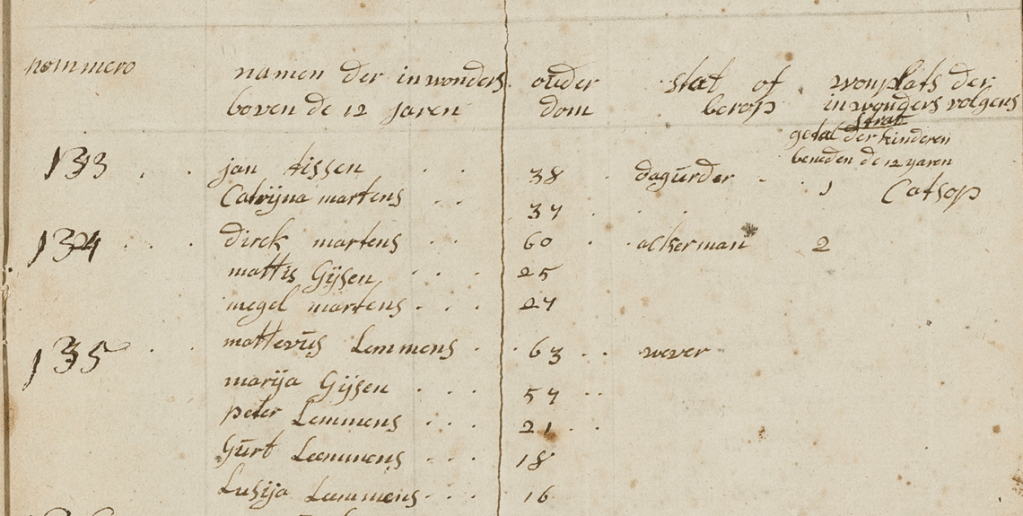 nommero namen der inwonders ouder stat of wonplats der
boven de 12 jaren dom berop inwonders volgens
strat
getal der kinderen
beneden de 12 yaren
133 jan tissen 38 dagurder 1 Catsop
Catrijna martens 37
134 dirck martens 60 ackerman 2
mattis Gijsen 25
megel martens 27
135 mattevis Lemmens 63 wever
marija Gijsen 57
peter Lemmens 21
Gurt Lemmens 18
Lusija Lemmens 16